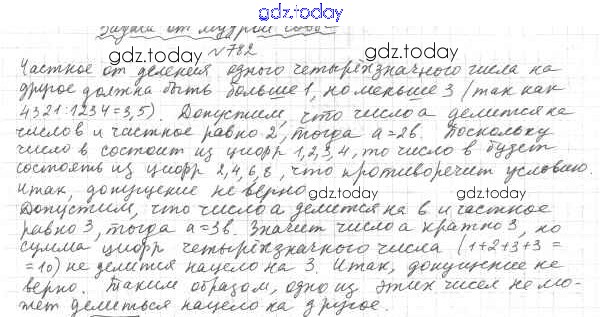 gdz.today
Задача от мудрой совы
№782
gdz.today gdz.today
Частное от деления одного четырёхзначного числа на
другое должна быть больше 1, но меньше 3 (так как
4321:1234=3,5). Допустим, что число а делится на
число в и частное равно 2, тогда а=2в. Поскольку
число в состоит из цифр 1,2,3,4, то число в будет
состоять из цифр 2,4,6,8, что противоречит условию.
Итак, допущение не верно.
gdz.today gdz.today
Допустим, что число а делится на в и частное
равно 3, тогда а=3в. Значит число а кратно 3, но
сумма цифр четырёхзначного числа (1+2+3+3=
=10) не делится нацело на 3. Итак, допущение не
верно. Таким образом, одно из этих чисел не мо-
жет делиться нацело на другое.
gdz.today gdz.today